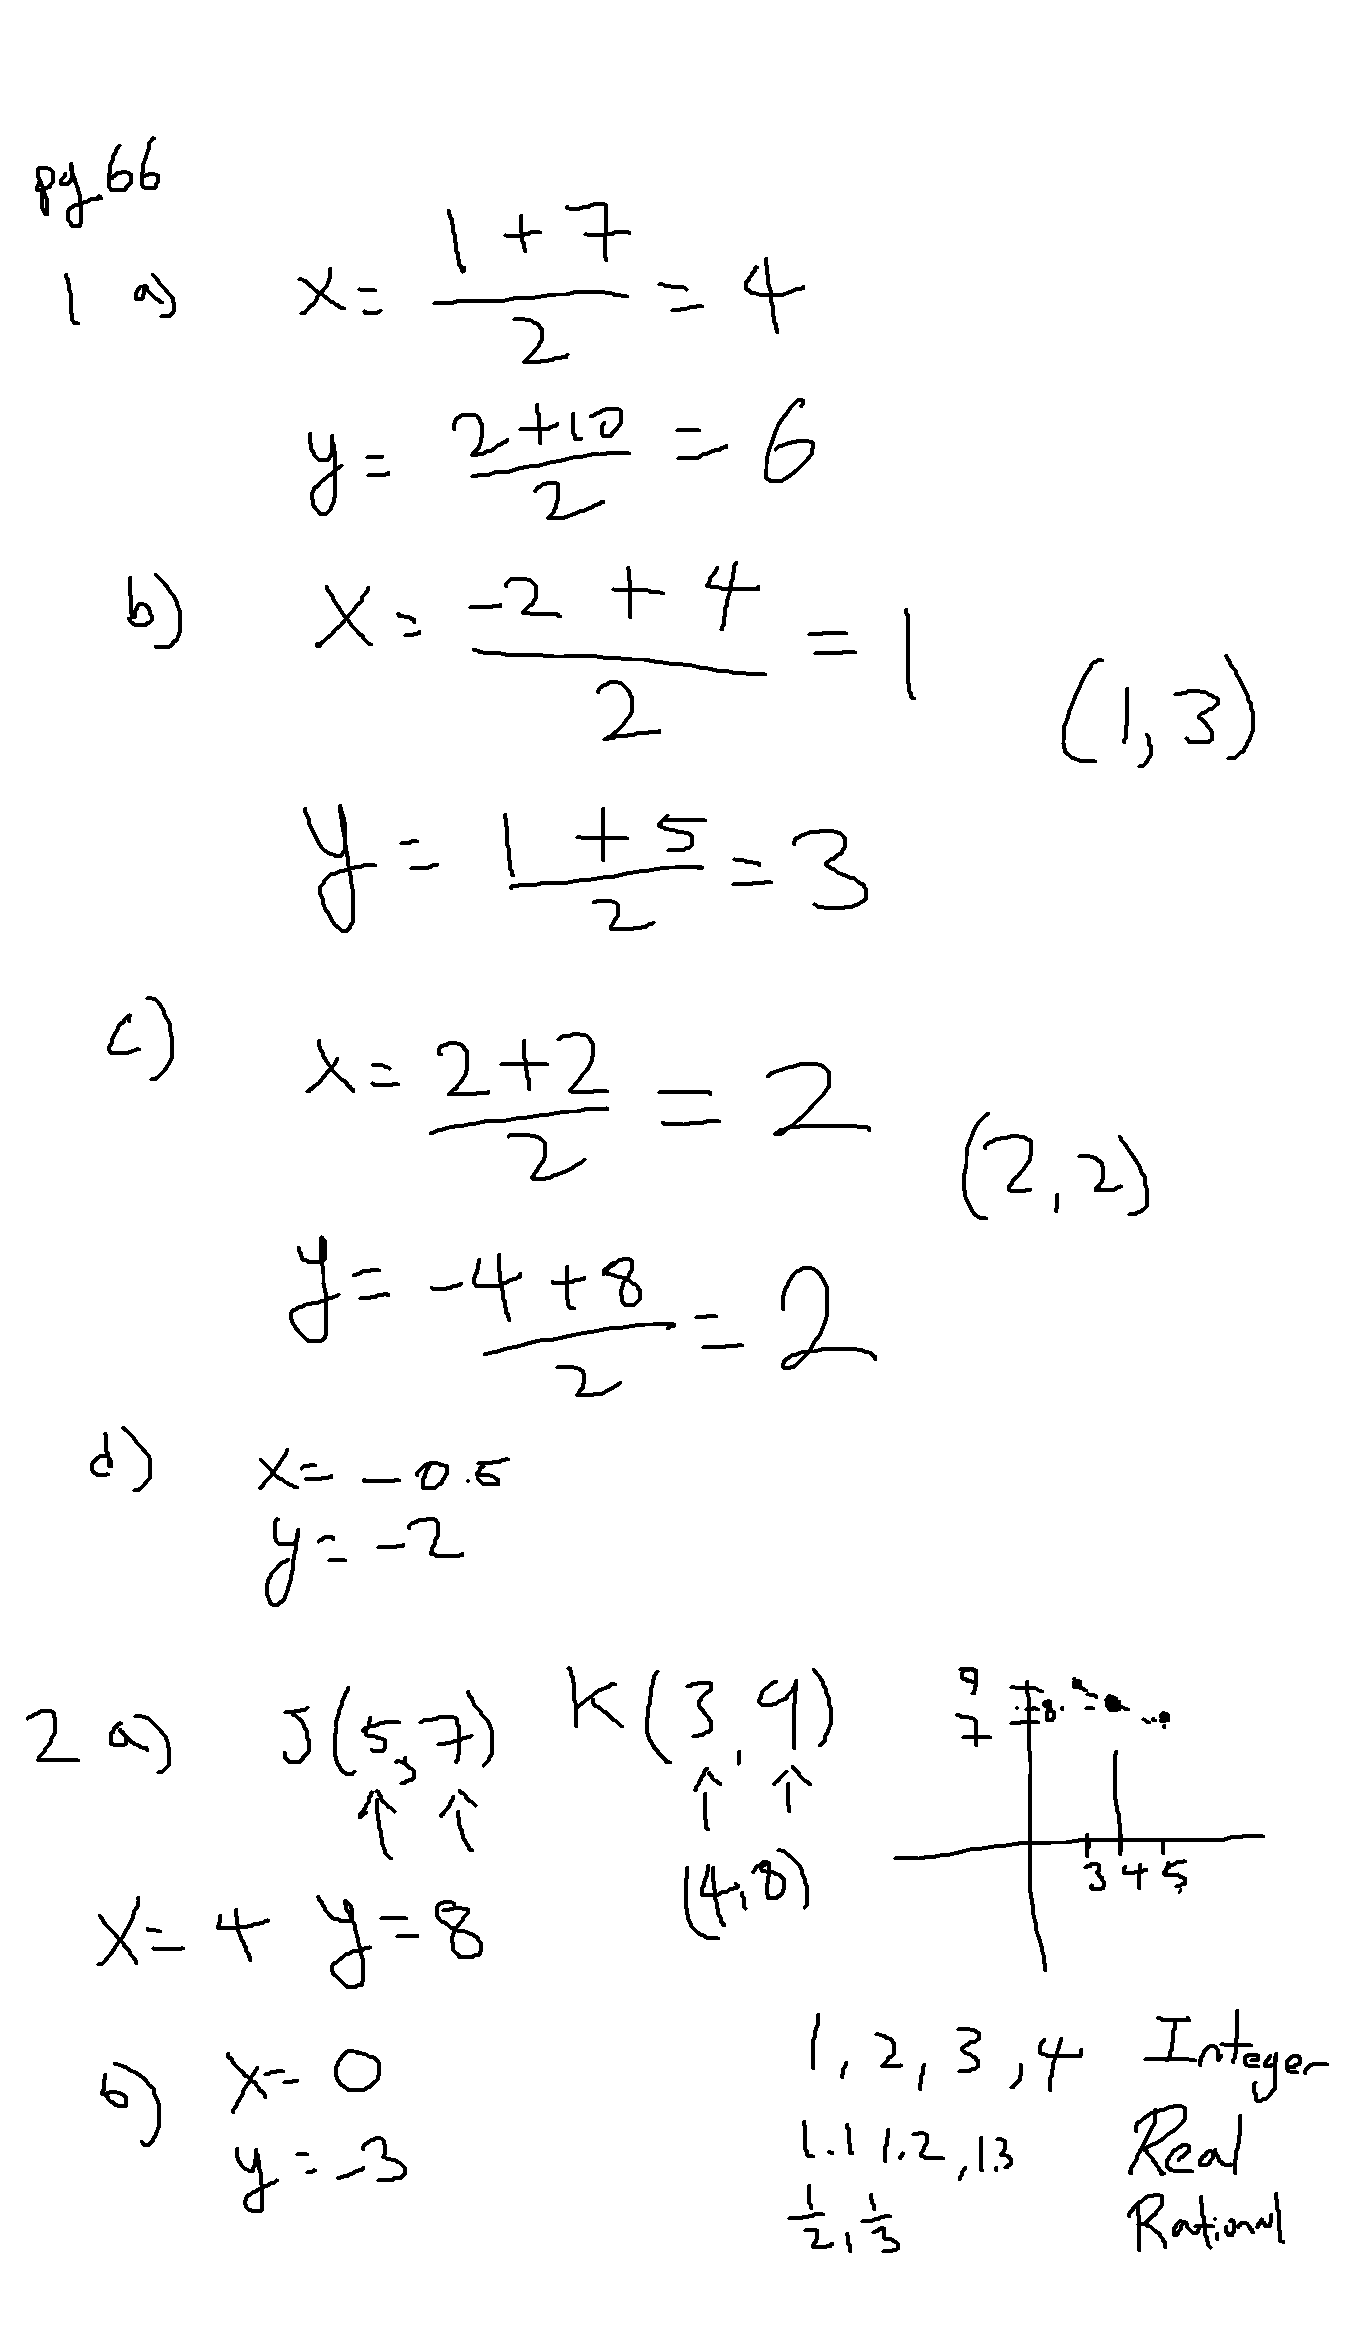 pg 66
1 a) x = 1 + 7 / 2 = 4
y = 2 + 10 / 2 = 6
b) x = -2 + 4 / 2 = 1
(1, 3)
y = 1 + 5 / 2 = 3
c) x = 2 + 2 / 2 = 2
(2, 2)
y = -4 + 8 / 2 = 2
d) x = -0.5
y = -2
2 a) J(5, 7) K(3, 9)
↑ ↑ ↑ ↑
(4, 8)
x = 4 y = 8
9
8
7
3 4 5
b) x = 0
y = -3
1, 2, 3, 4 Integer
1.1 1.2, 1.3 Real
1/2, 1/3 Rational